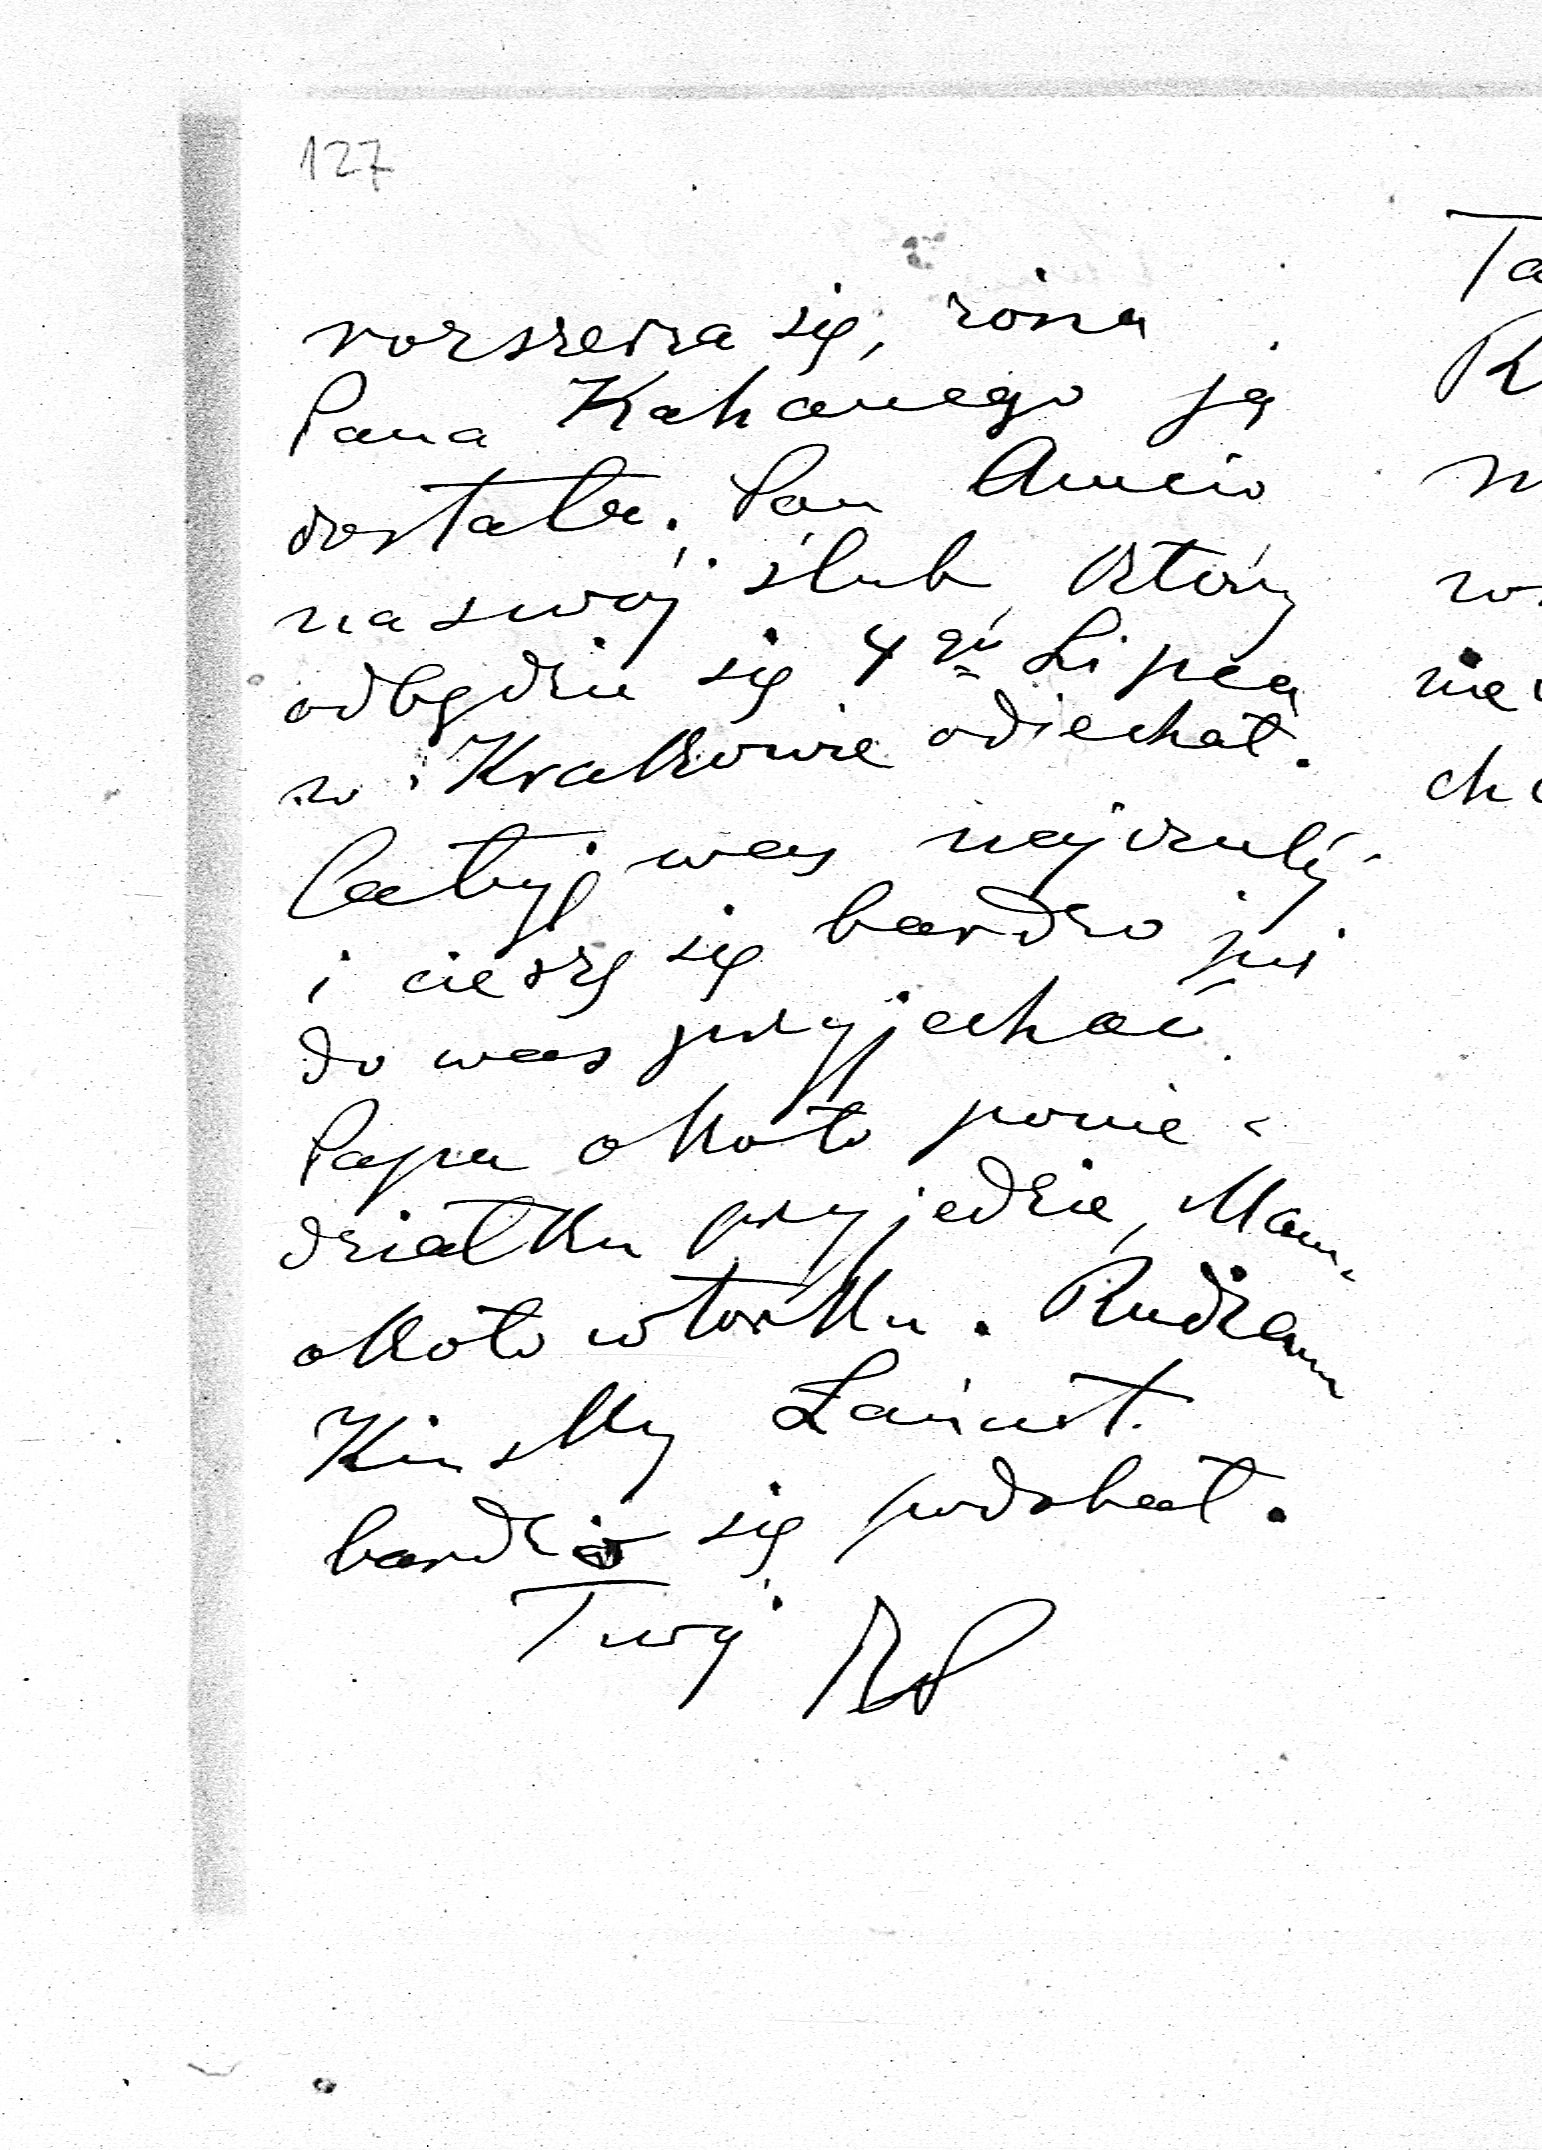 127
rozszerza się, żona
Pana Kahanego ją
dostała. Pan
na swój ślub, który
odbędzie się 4 go Lipca
w Krakowie odiechał.
Całuję was najczulej
i cieszę się bardzo już
do was przyjechać.
Papa około ponie-
działku przyjedzie, Mam.
około wtorku.
Kinsky Łańcut
bardzo się podobał.
Twój
Ta
R
ch